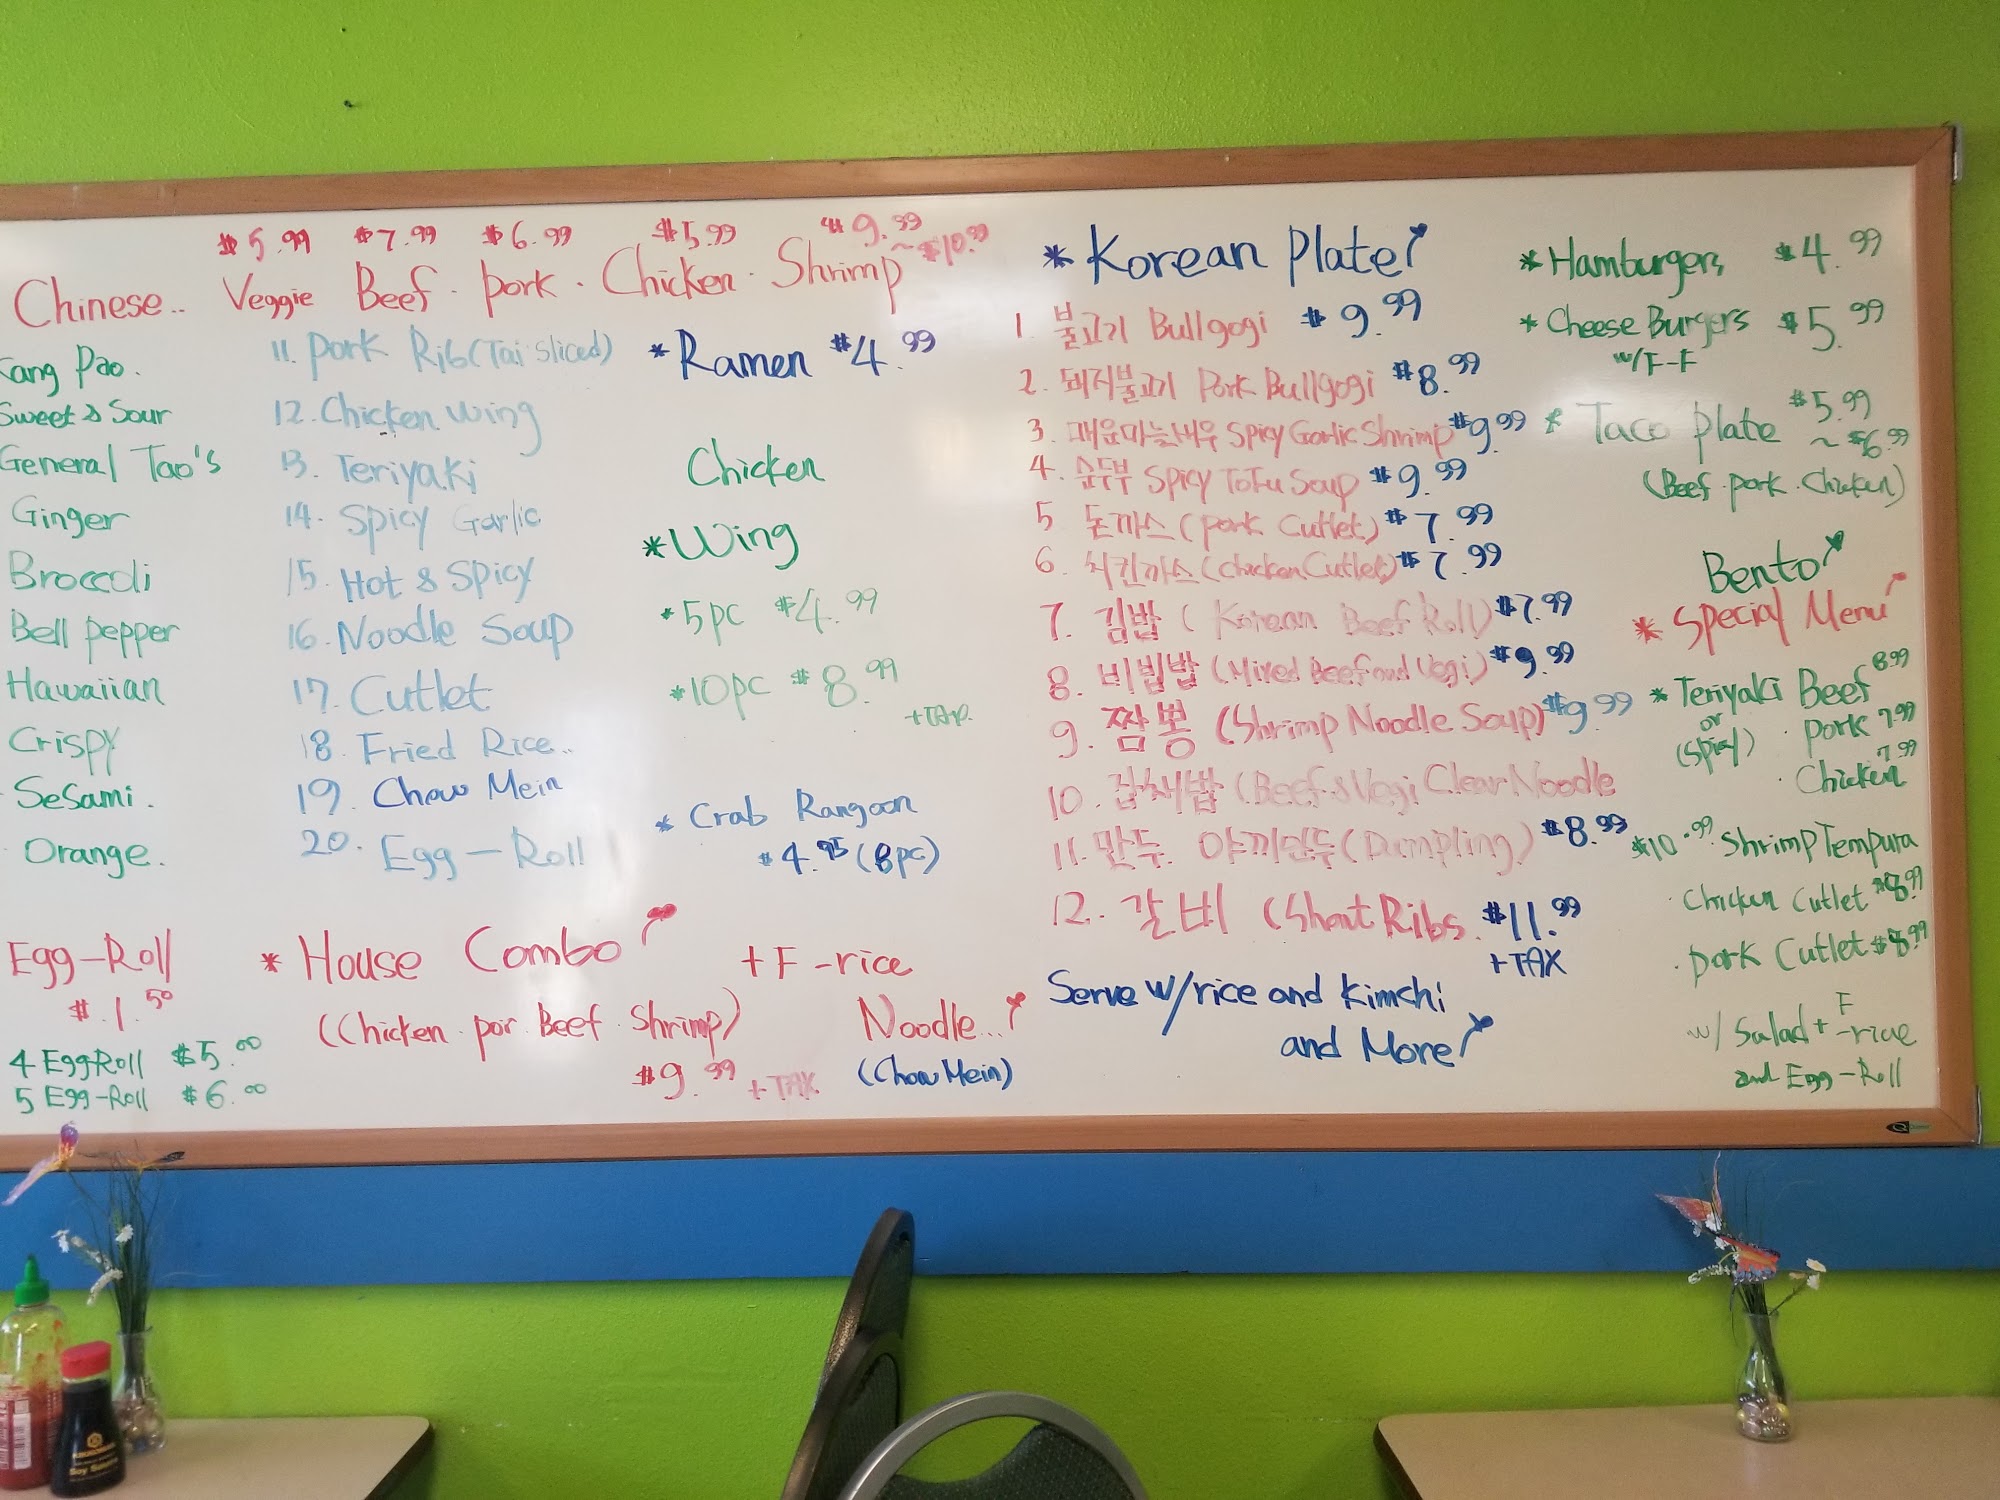 $5.99 $7.99 $6.99 $5.99 $9.99 ~ $10.99
Chinese.. Veggie Beef. pork. Chicken. Shrimp
Pao.
Sweet & Sour
General Tao's
Ginger
Broccoli
Bell pepper
Hawaiian
Crispy
Sesami.
Orange.
11. Pork Rib (Tai Sliced)
12. Chicken Wing
13. Teriyaki
14. Spicy Garlic
15. Hot & Spicy
16. Noodle Soup
17. Cutlet
18. Fried Rice..
19. Chow Mein
20. Egg-Roll
* Ramen $4.99
Chicken
* Wing
* 5pc $4.99
* 10pc $8.99
+TAX
* Crab Rangoon
$4.95 (8pc)
Egg-Roll
$.1.50
4 EggRoll $5.00
5 Egg-Roll $6.00
* House Combo
(Chicken. por. Beef. Shrimp)
$9.99 +TAX
+ F-rice
Noodle...
(Chow Mein)
* Korean Plate
1. 불고기 Bullgogi $9.99
2. 돼지불고기 Pork Bullgogi $8.99
3. 매운마늘새우 Spicy Garlic Shrimp $9.99
4. 순두부 Spicy ToFu Soup $9.99
5. 돈까스 (pork Cutlet) $7.99
6. 치킨까스 (Chicken Cutlet) $7.99
7. 김밥 (Korean Beef Roll) $7.99
8. 비빔밥 (Mixed Beef and Vegi) $9.99
9. 짬뽕 (Shrimp Noodle Soup) $9.99
10. 잡채밥 (Beef & Vegi Clear Noodle
11. 만두. 야끼만두 (Dumpling) $8.99
12. 갈비 (Short Ribs. $11.99
+TAX
Serve w/rice and Kimchi
and More
* Hamburgers $4.99
* Cheese Burgers $5.99
w/F-F
* Taco Plate $5.99 ~ $6.99
(Beef. pork. Chicken)
Bento
* Special Menu
* Teriyaki Beef 8.99
or
(Spicy) . Pork 7.99
. Chicken 7.99
$10.99 Shrimp Tempura
. Chicken Cutlet $8.99
. Pork Cutlet $8.99
w/ Salad + F-rice
and Egg-Roll
Soy Sauce